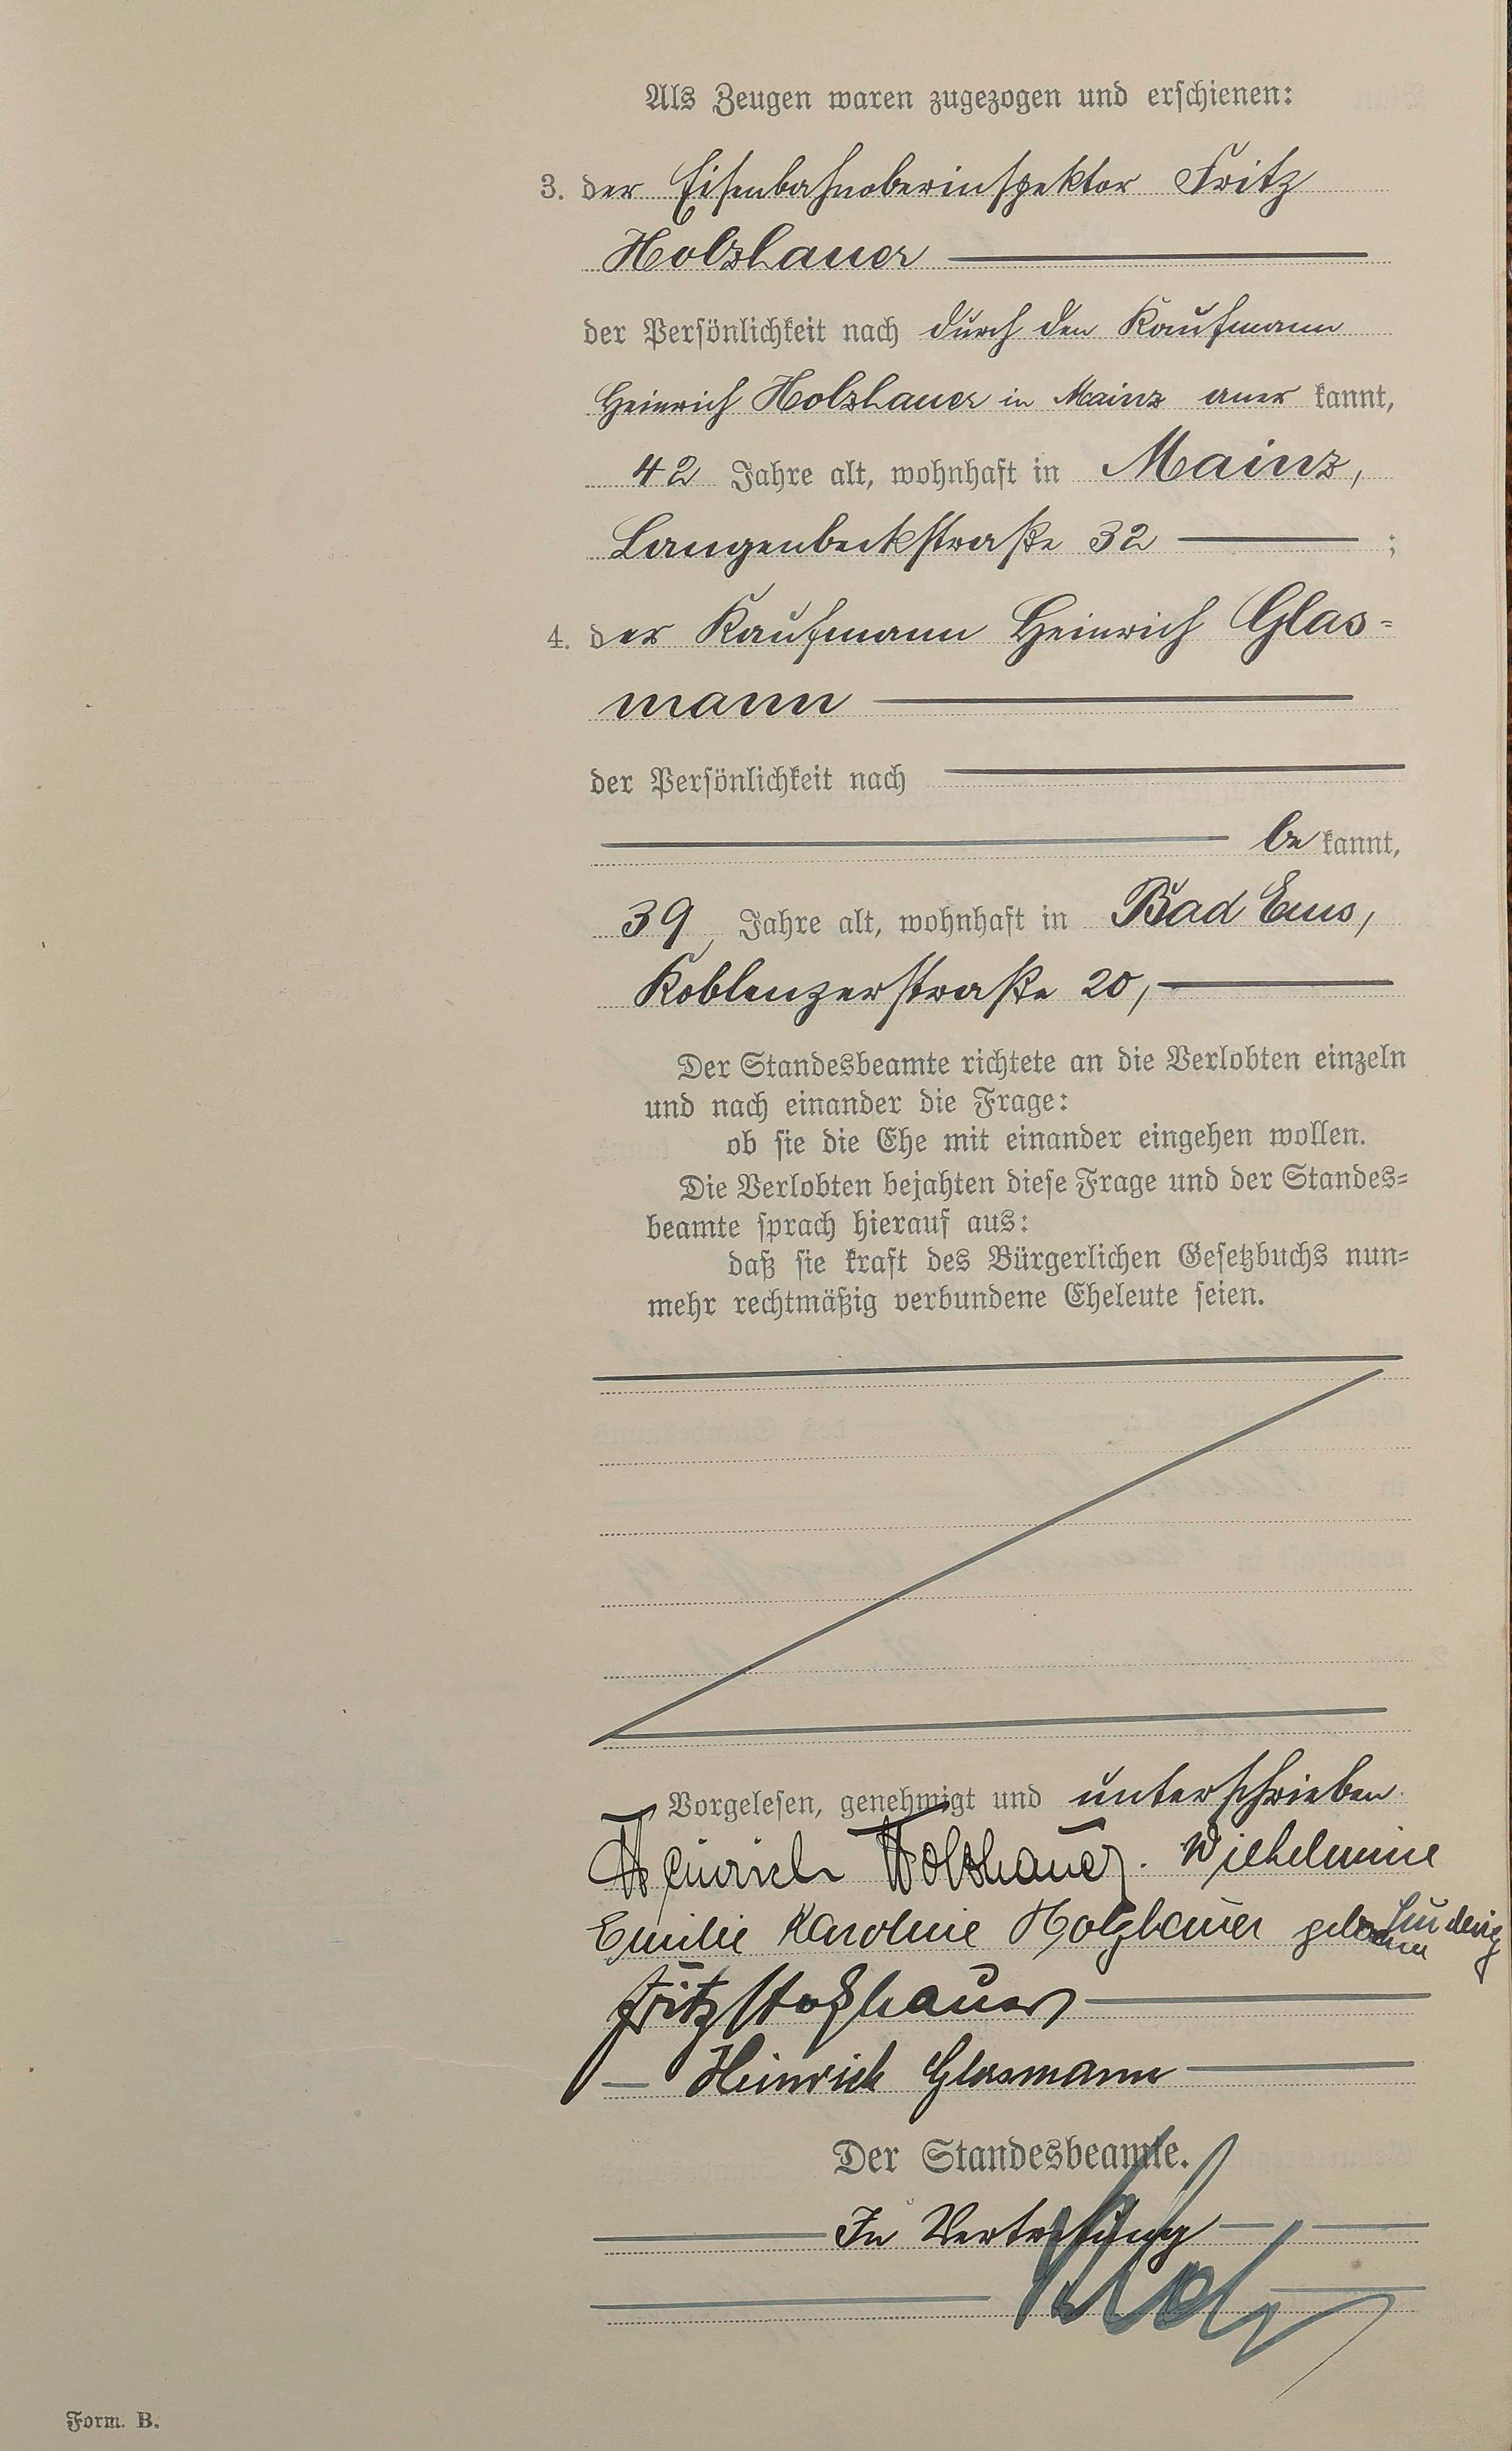 Als Zeugen waren zugezogen und erschienen:
3. der Eisenbahnoberinspektor Fritz
Holzhauer
der Persönlichkeit nach durch den Kaufmann
Heinrich Holzhauer in Mainz aner kannt,
42 Jahre alt, wohnhaft in Mainz,
Langenbeckstraße 32 ;
4. der Kaufmann Heinrich Glas=
mann
der Persönlichkeit nach
be kannt,
39, Jahre alt, wohnhaft in Bad Ems,
Koblenzerstraße 20,
Der Standesbeamte richtete an die Verlobten einzeln
und nach einander die Frage:
ob sie die Ehe mit einander eingehen wollen.
Die Verlobten bejahten diese Frage und der Standes=
beamte sprach hierauf aus:
daß sie kraft des Bürgerlichen Gesetzbuchs nun=
mehr rechtmäßig verbundene Eheleute seien.
Vorgelesen, genehmigt und unterschrieben
Heinrich Holzhauer. Wilhelmine
Emilie Karoline Holzhauer geborene Ludwig
Fritz Holzhauer
Heinrich Glasmann
Der Standesbeamte.
In Vertretung
Form. B.